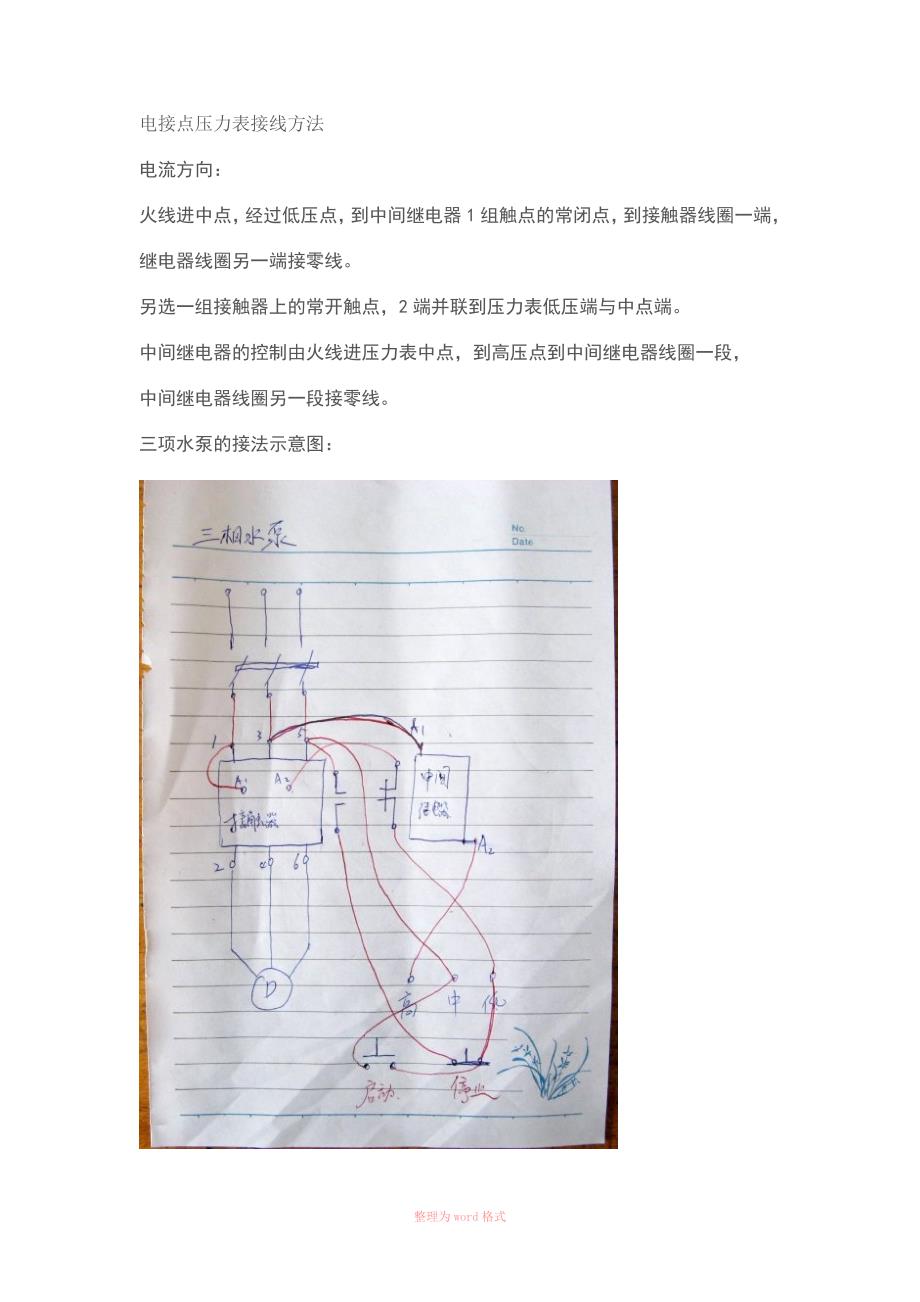 电接点压力表接线方法
电流方向：
火线进中点，经过低压点，到中间继电器1组触点的常闭点，到接触器线圈一端，
继电器线圈另一端接零线。
另选一组接触器上的常开触点，2端并联到压力表低压端与中点端。
中间继电器的控制由火线进压力表中点，到高压点到中间继电器线圈一段，
中间继电器线圈另一段接零线。
三项水泵的接法示意图：
三相水泵
No.
Date
1 3 5 A1
A1 A2 中间
接触器
2 4 6 A2
D
高 中 低
启动. 停止
整理为word格式